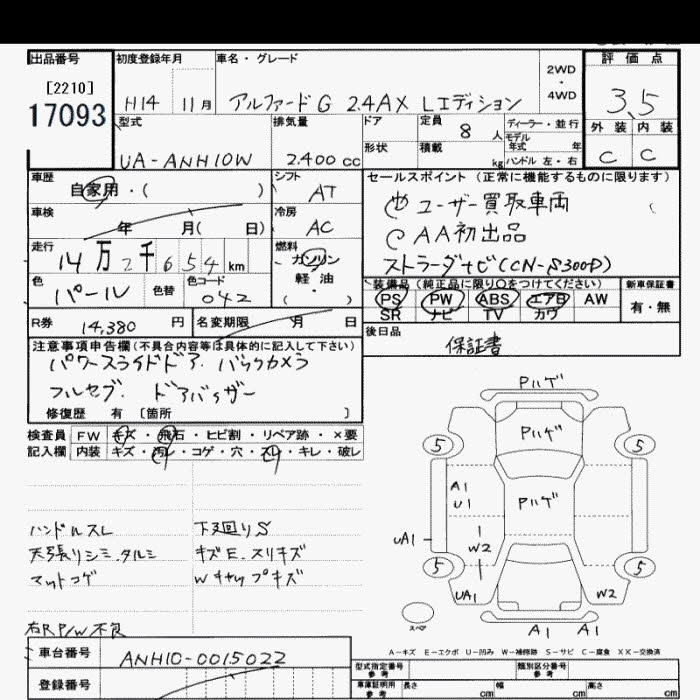 出品番号
[2210]
17093
初度登録年月
H14 11月
車名・グレード
アルファードG 2.4AX Lエディション
2WD
・
4WD
評価点
3.5
外装 内装
C C
型式
UA-ANH10W
排気量
2.400 cc
ドア
形状
定員
8 人
積載
kg
ディーラー・並行
モデル
年式 年
ハンドル 左・右
車歴
自家用・( )
シフト
AT
車検
年 月( 日)
冷房
AC
走行
14万2千654km
燃料
ガソリン
軽油
( ・ )
色
パール
色替
色コード
042
R券
14,380 円
名変期限
月 日
セールスポイント (正常に機能するものに限ります)
ユーザー買取車両
AA初出品
ストラーダナビ(CN-S300D)
装備品 (純正品に限り○をつけてください)
PS PW ABS エアB AW
SR ナビ TV カワ
新車保証書
有・無
後日品
保証書
注意事項申告欄(不具合内容等は具体的に記入して下さい)
パワースライドドア. バックカメラ
フルセグ. ドアバイザー
修復歴 有 [箇所 ]
検査員 FW キズ・飛石・ヒビ割・リペア跡・×要
記入欄 内装 キズ・汚レ・コゲ・穴・スレ・キレ・破レ
ハンドルスレ
天張りシミ.タルミ
マットコゲ
右R P/W不良
下廻りS
キズE.スリキズ
Wキャップキズ
Pハゲ
Pハゲ
5 5
A1
U1
Pハゲ
UA1
W2
5 5
UA1 W2
スペア
A1 A1
A-キズ E-エクボ U-凹み W-補修跡 S-サビ C-腐食 XX-交換済
車台番号
ANH10-0015022
登録番号
型式指定番号
参考
類別区分番号
参考
車庫証明用
参考
長さ cm
幅 cm
高さ cm